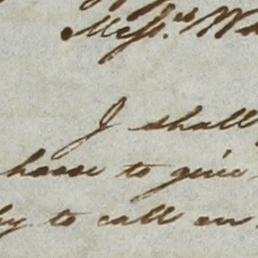 Messrs. Wa
I shall
hoose to give
by to call on